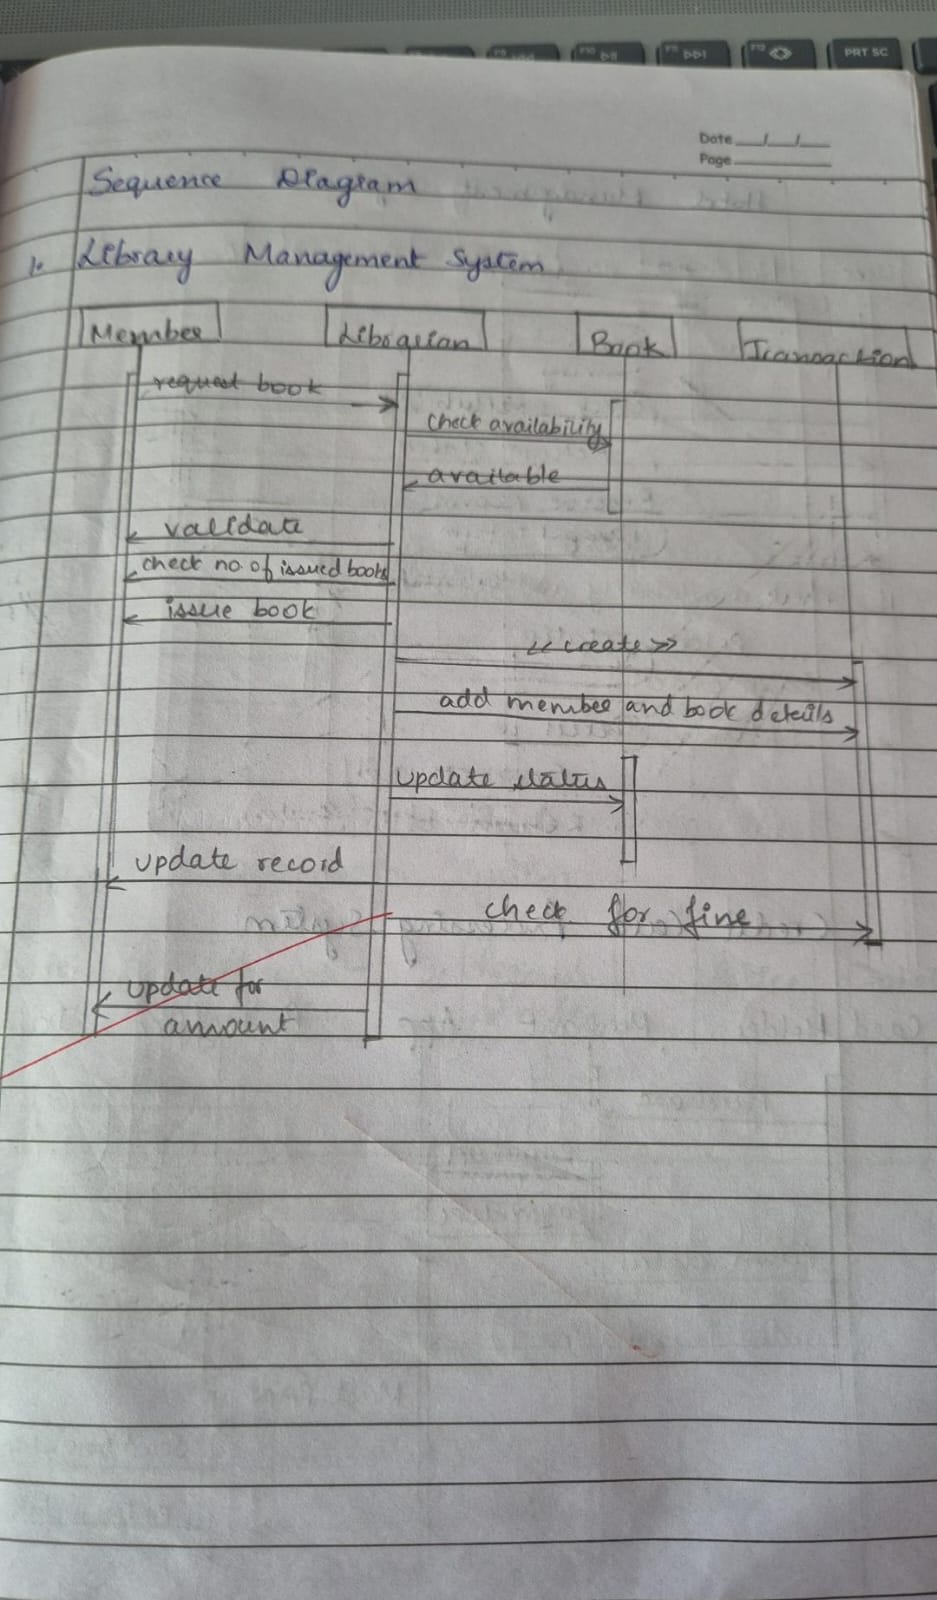 PRT SC
Date __/__/__
Page
Sequence Diagram
1. Library Management System
Member Librarian Book Transaction
request book
check availability
available
validate
check no. of issued books
issue book
<< create >>
add member and book details
update status
update record
check for fine
update for
amount